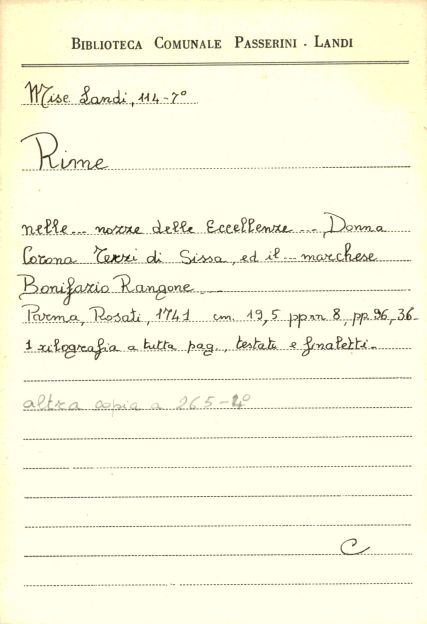 BIBLIOTECA COMUNALE PASSERINI - LANDI
Misc Landi, 114-7°
Rime
nelle... nozze delle Eccellenze ..., Donna
Corona Terzi di Sissa, ed il ... marchese
Bonifazio Rangone ...
Parma, Rosati, 1741 cm. 19,5 pp nn 8, pp. 96, 36-
1 xilografia a tutta pag., testate e finaletti.
altra copia a 265-4°
C